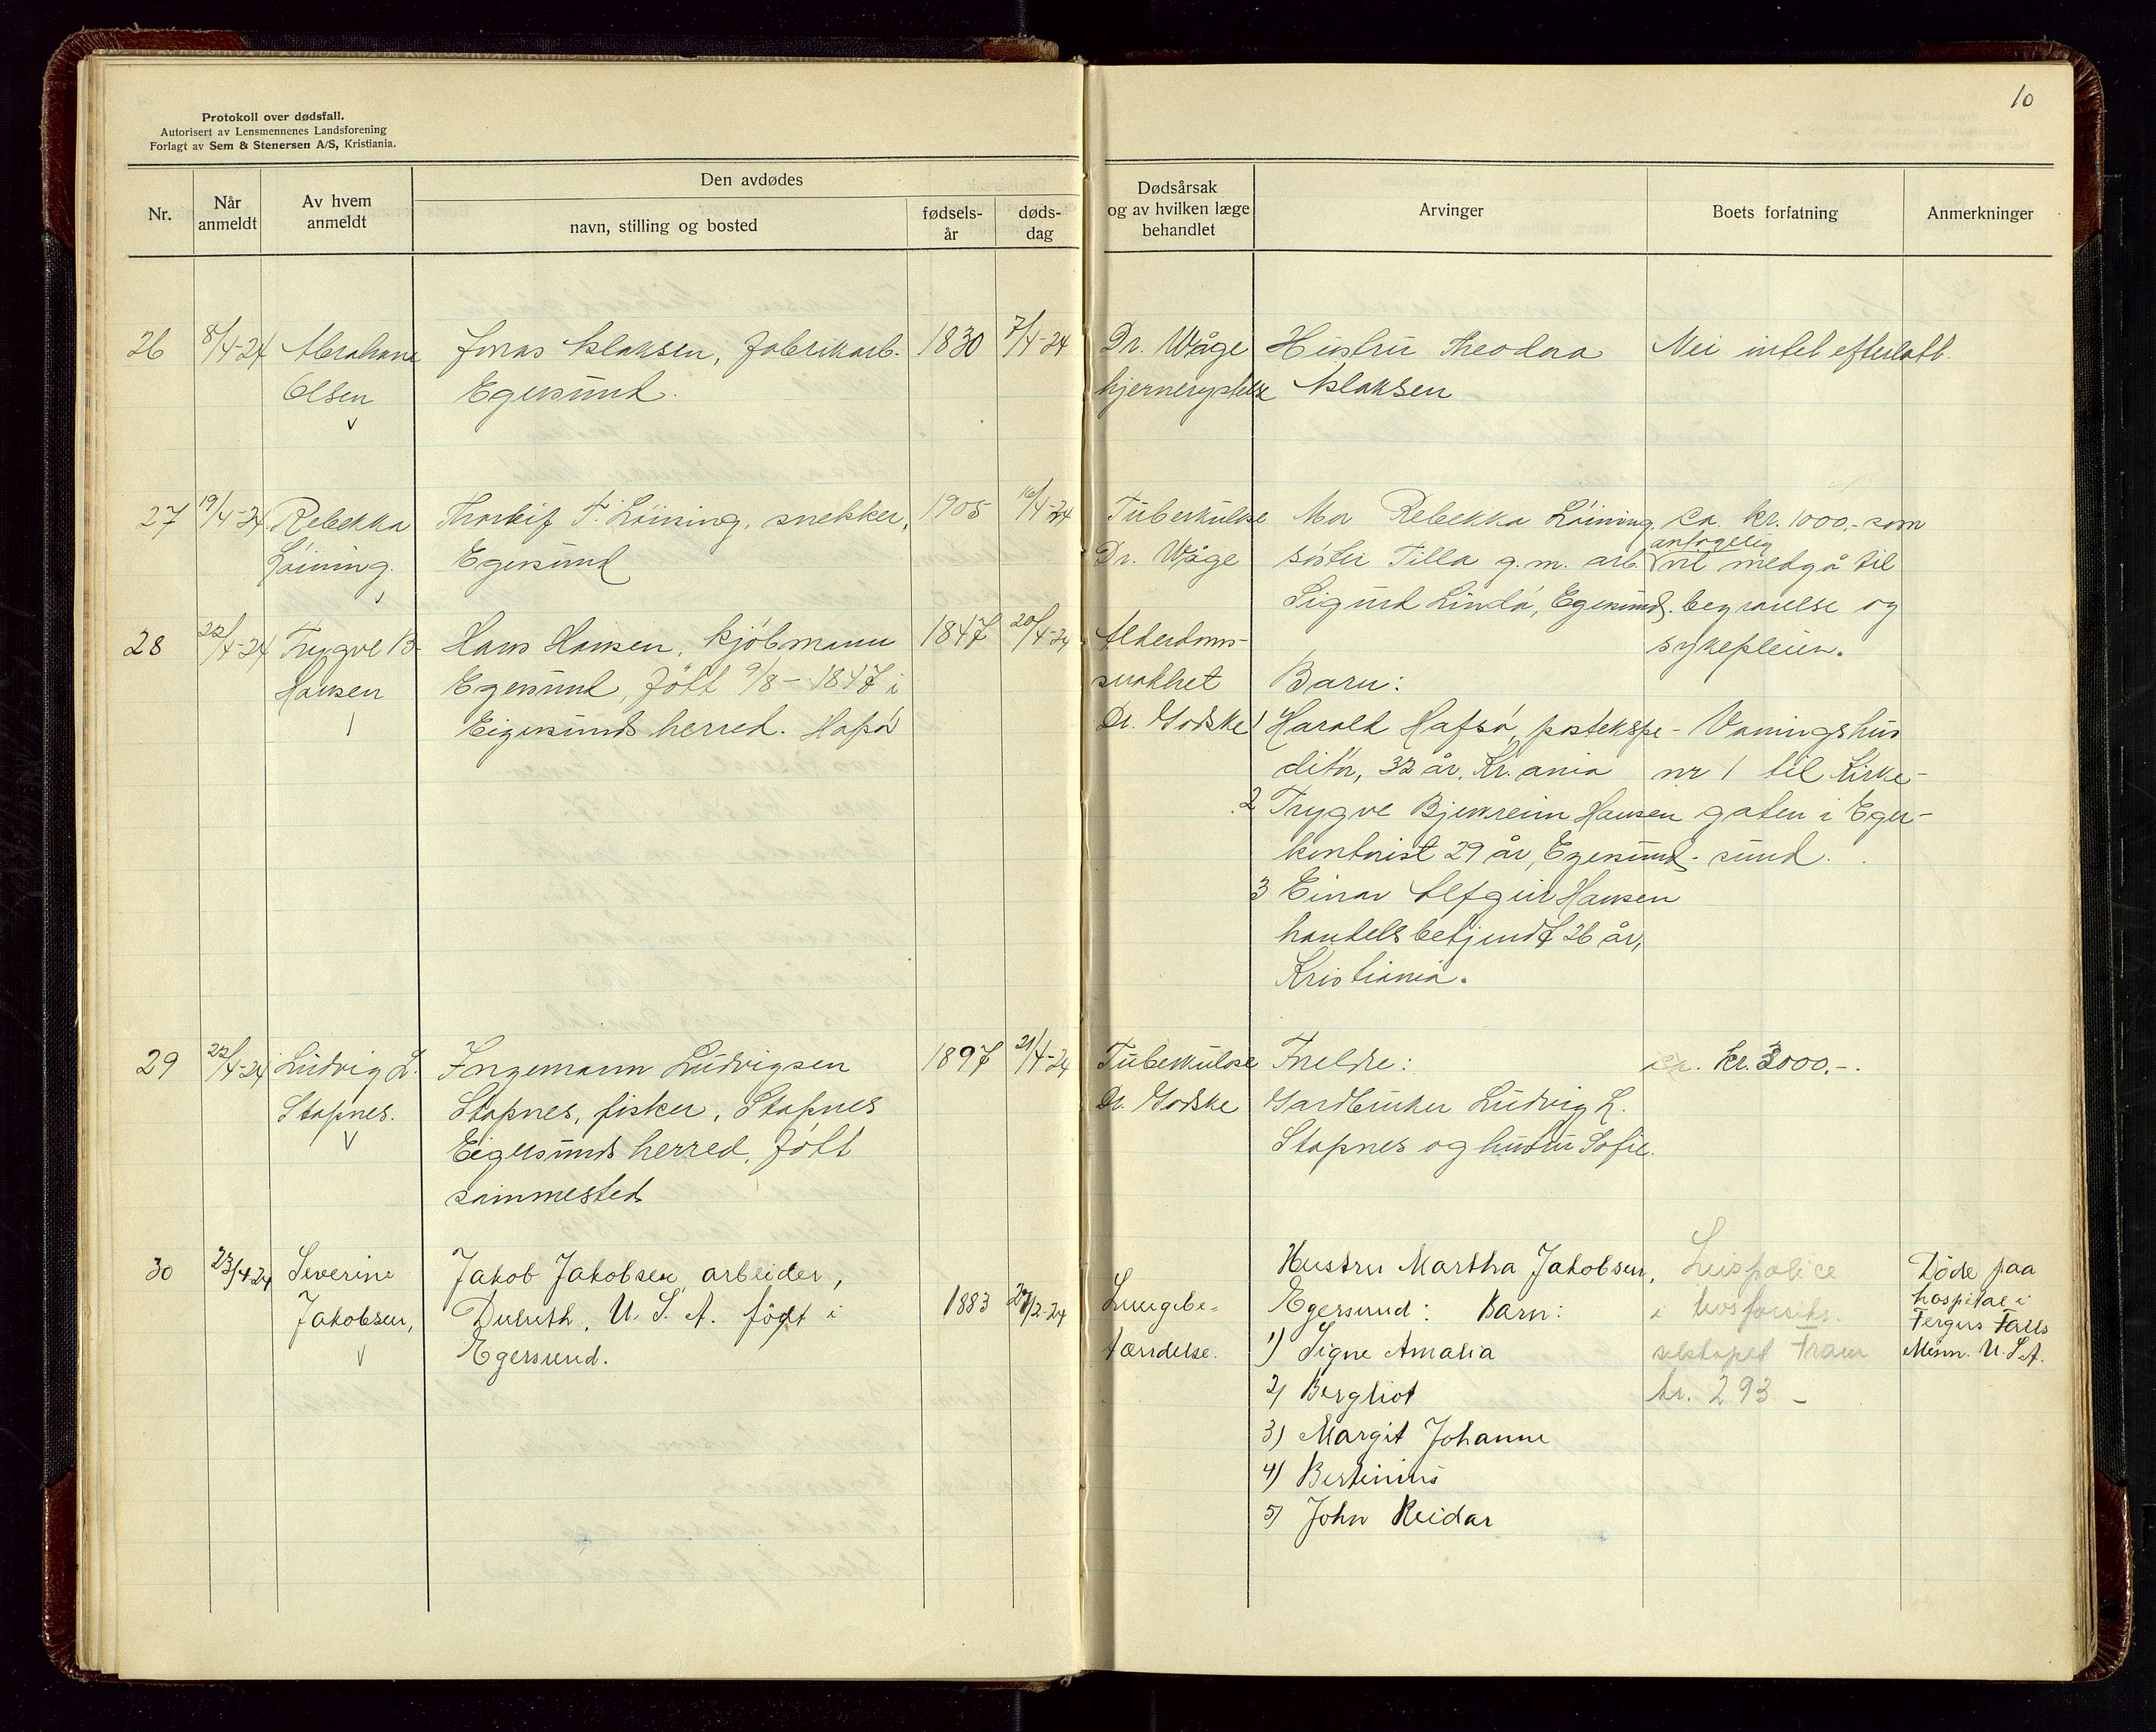 10
Protokoll over dødsfall.
Autorisert av Lensmennenes Landsforening
Forlagt av Sem & Stenersen A/S, Kristiania.
Nr.
Når anmeldt
Av hvem anmeldt
Den avdødes
navn, stilling og bosted
fødsels-år
døds-dag
Dødsårsak og av hvilken læge behandlet
Arvinger
Boets forfatning
Anmerkninger
26 8/4-24 Abrahane Jonas Aslaksen, fabrikarb. 1830 7/4-24 Dr. Wåge Hustru Theodora Nei intet efterlatt.
Olsen Egersund. hjernerystelse Aslaksen
27 19/4-24 Rebekka F. Löining, snekker, 1905 16/4-24 Tuberkulose Mor Rebekka Löining. ca. kr. 1000.- som
Löining. Egersund Dr. Wåge söster Tilla g.m. arb. antagelig vil medgå til
Sigurd Lindö, Egersund. begravelse og
sykepleien.
28 22/4-24 Trygve B. Hans Hansen, kjöbmann 1847 20/4-24 Alderdoms-
Hansen Egersund, født 9/8-1847 i svakhet Barn:
Eigersunds herred. Hafsö Dr. Godske 1 Harald Hafsö, postekspe- Vaningshus
ditör, 32 år, Kr.ania nr 1 til Kirke-
2 Trygve Bjerkreim Hansen gaten i Eger-
kontorist 29 år, Egersund. sund.
3 Einar Alfgeir Hansen
handelsbetjendt 26 år,
Kristiania.
29 22/4-24 Ludvig L. Ingemann Ludvigsen 1897 21/4-24 Tuberkulose Foreldre: kr. 3000.-.
Stapnes. Stapnes, fisker, Stapnes Dr. Godske Gardbruker Ludvig L.
Eigersunds herred, født Stapnes og hustru Sofie.
sammested
30 23/4 24 Severine Jakob Jakobsen, arbeider, Hustru Martha Jakobsen, Livspolice Döde paa
Jakobsen, Duluth, U.S.A. født i 1883 /2-24 Lungebe- Egersund: Barn: i livsforsikr. hospital i
Egersund. tændelse. 1) Signe Amalia selskapet Fram Fergus Falls
2) Bergliot kr. 293 - Minn. U.S.A.
3) Margit Johanne
4) Bertinius
5) John Reidar